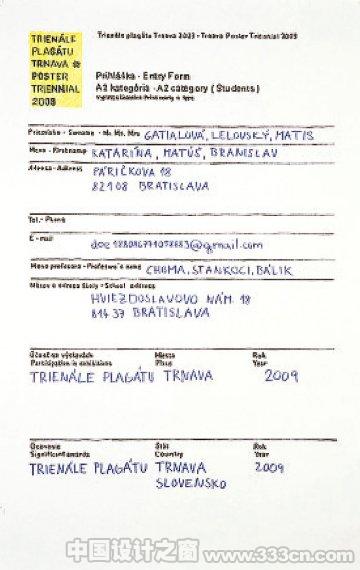 TRIENÁLE
PLAGÁTU
TRNAVA &
POSTER
TRIENNIAL
2009
Trienále plagátu Trnava 2009 - Trnava Poster Triennial 2009
Prihláška - Entry Form
A2 kategória - A2 category ( Students )
Priezvisko - Surname - Mr. Ms. Mrs GATIALOVÁ, LELOVSKÝ, MATIS
Meno - Firstname KATARÍNA, MATÚŠ, BRANISLAV
Adresa - Address PÁRIČKOVA 18
82108 BRATISLAVA
Tel. - Phone
E - mail @gmail.com
Meno profesora - Professor's name CHOMA, STANKOCI, BÁLIK
Názov a adresa školy - School address
HVIEZDOSLAVOVO NÁM. 18
81437 BRATISLAVA
Účasť na výstavách Miesto Rok
Participation in exhibitions Place Year
TRIENÁLE PLAGÁTU TRNAVA 2009
Ocenenie Štát Rok
Significant awards Country Year
TRIENÁLE PLAGÁTU TRNAVA 2009
SLOVENSKO
中国设计之窗 www.333cn.com